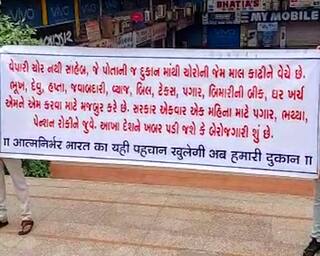 BHATIA'S
MY MOBILE
વેપારી ચોર નથી સાહેબ, જે પોતાની જ દુકાન માંથી ચોરોની જેમ માલ કાઢીને વેચે છે.
ભૂખ, દેવુ, હપ્તા, જવાબદારી, વ્યાજ, બિલ, ટેક્સ, પગાર, બિમારીની બીક, ઘર ખર્ચ
એમને એમ કરવા માટે મજબુર કરે છે. સરકાર એકવાર એક મહિના માટે પગાર, ભથ્થા,
પેન્શન રોકીને જુવે. આખા દેશને ખબર પડી જશે કે બેરોજગારી શું છે.
॥ आत्मनिर्भर भारत का यही पहचान खुलेगी अब हमारी दुकान ॥